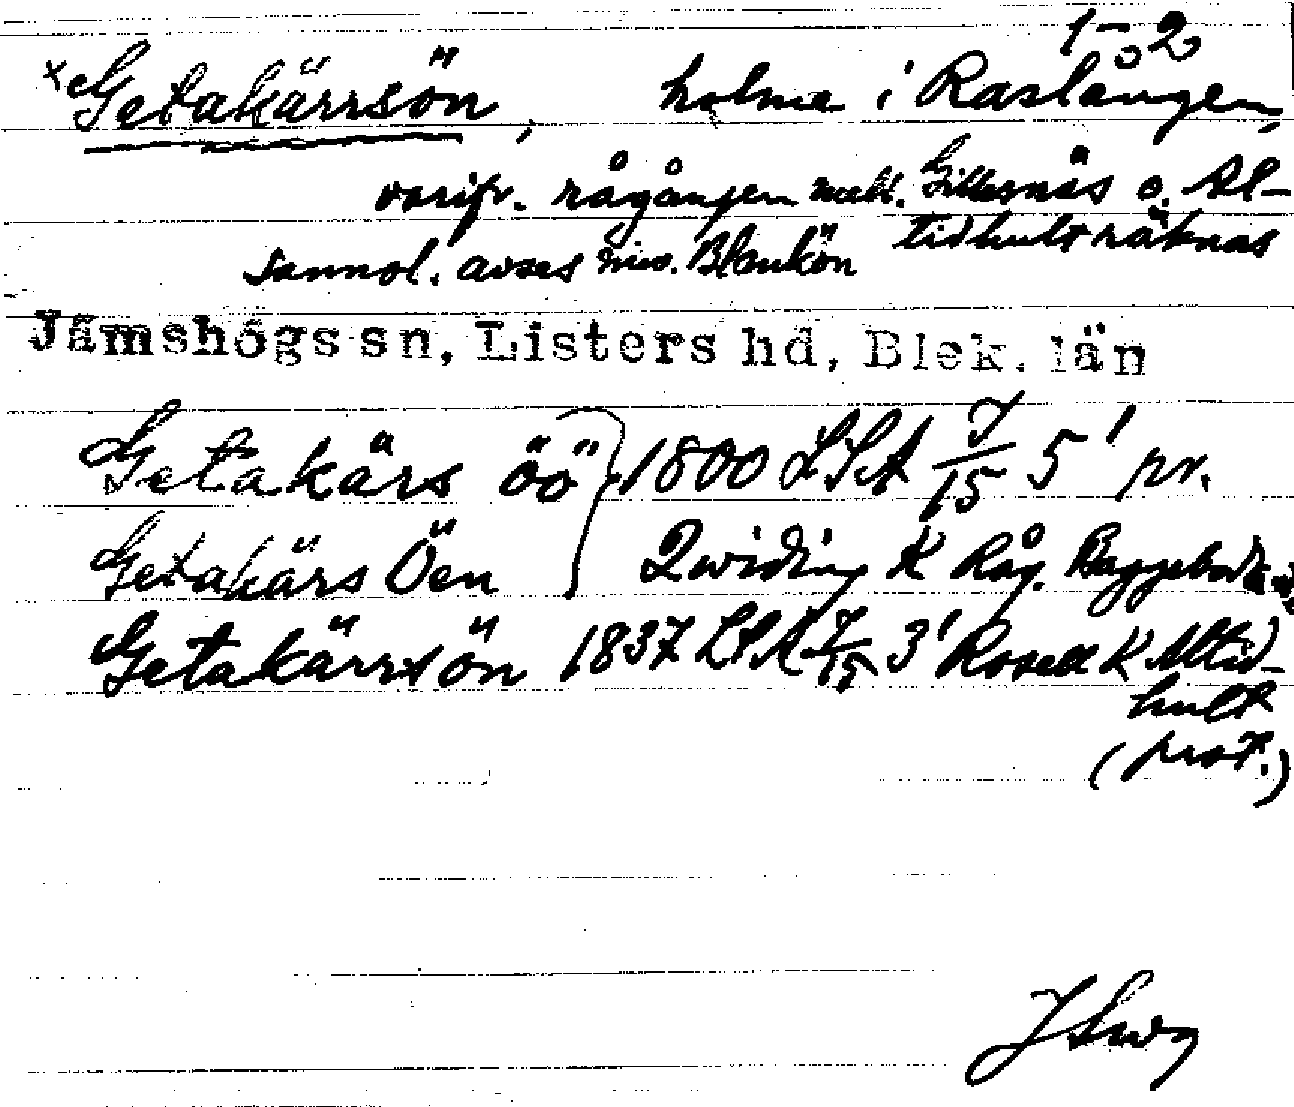 1–2
×Getakärrsön, holme i Raslången,
varifr. rågången mell. Gillesnäs o. Al-
tidhult räknas
Sannol. avses nuv. Blankön
Jämshögs sn, Listers hd, Blek. län
Getakärs öö } 1800 LSA J/15 5' pr.
Getakärs Öen Qwiding K Råg. Baggeboda
Getakärrsön 1837 LSA J/15 3' Rosell K Altid-
hult
(prot.)